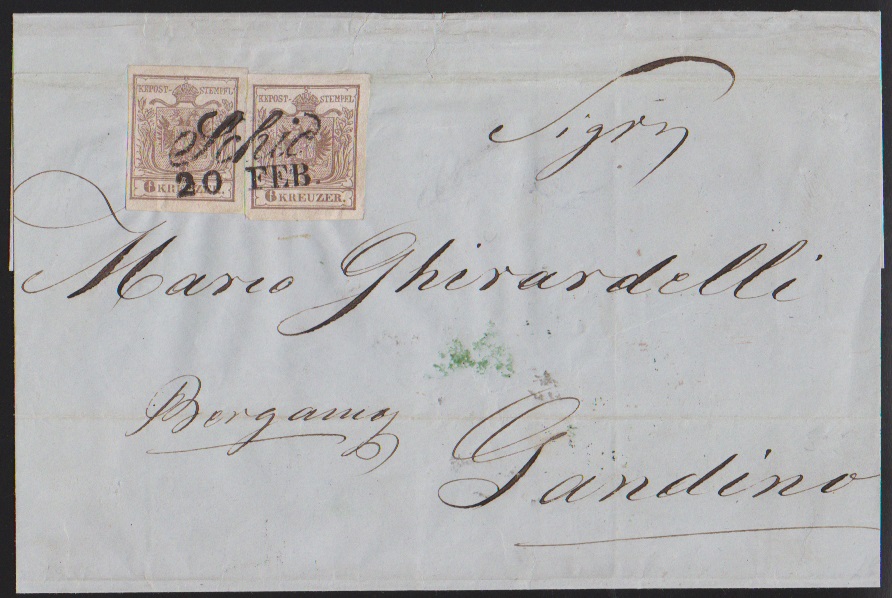 KKPOST-STEMPEL KKPOST-STEMPEL
Schio
20 FEB.
6 KREUZER. 6 KREUZER.
Sigre
Mario Ghirardelli
Bergamo
Gandino